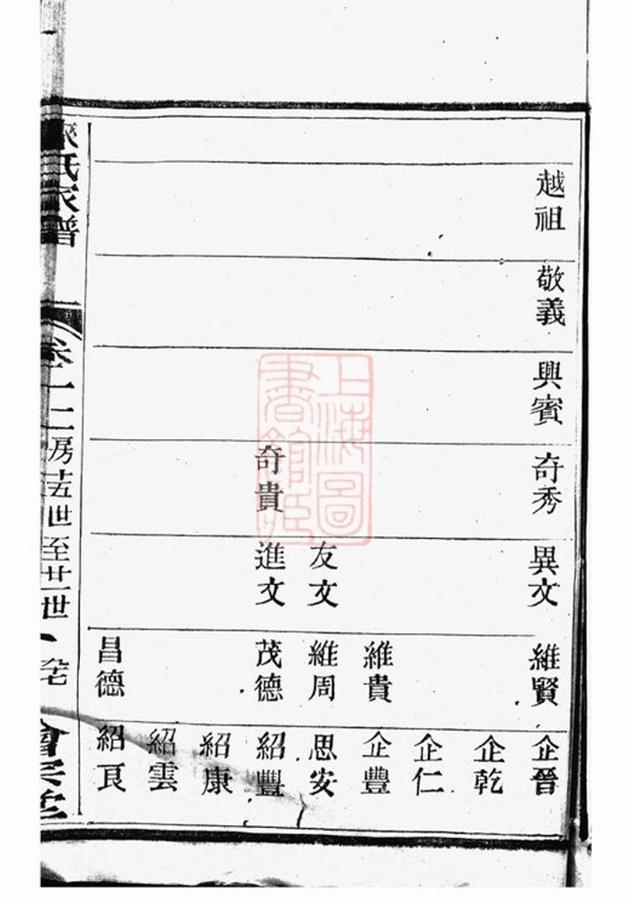 越祖
敬義
興賓
奇秀
異文
維賢
企晉
企乾
企仁
維貴
企豐
友文
維周
思安
奇貴
進文
茂德
紹豐
紹康
紹雲
昌德
紹良
氏家譜
卷十二
房十五世至廿一世
上海圖
書館藏